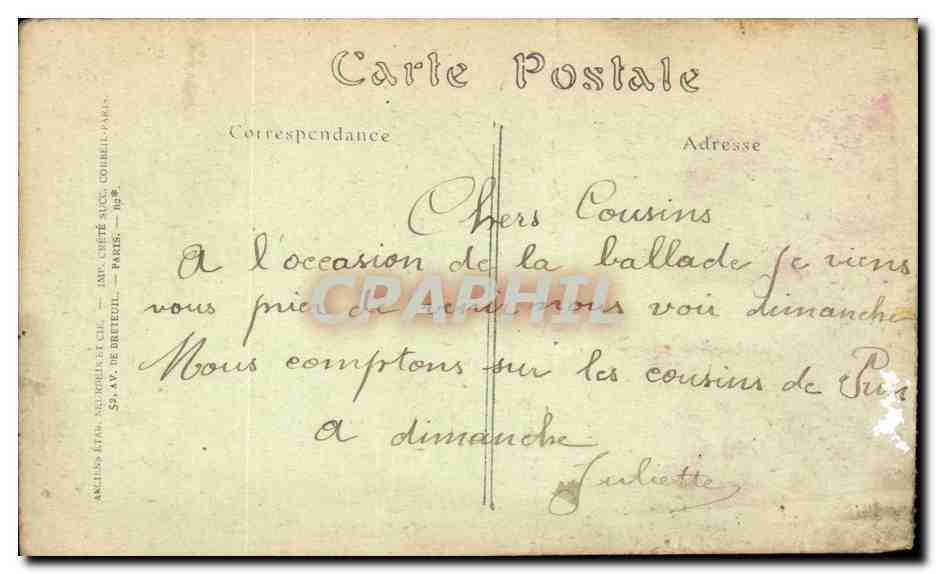 Carte Postale
Correspondance
Adresse
Chers Cousins
A l'occasion de la ballade Je viens
vous prier de venir nous voir dimanche
Nous comptons sur les cousins de
A dimanche
Juliette
ANCIENS ÉTAB. NEURDEIN ET CIE. — IMP. CRÉTÉ SUCC. CORBEIL-PARIS.
52, AV. DE BRETEUIL. — PARIS. —
CPARHIL